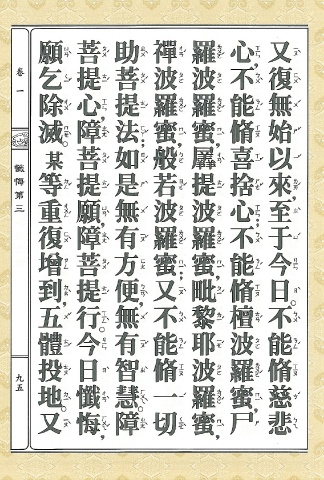 又復無始以來，至于今日。不能脩慈悲
心，不能脩喜捨心，不能脩檀波羅蜜，尸
羅波羅蜜，羼提波羅蜜，毗黎耶波羅蜜，
禪波羅蜜，般若波羅蜜，又不能脩一切
助菩提法，如是無有方便，無有智慧。障
菩提心，障菩提願，障菩提行。今日懺悔，
願乞除滅。某等重復增到，五體投地。又
卷一
懺悔第三
九五